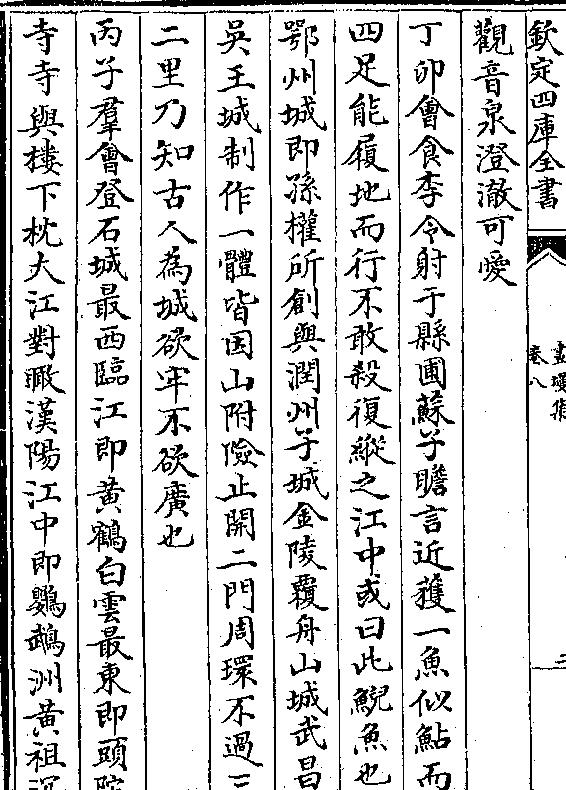 欽定四庫全書
畫墁集
卷八
觀音泉澄澈可愛
丁卯會食李令射于縣圃蘇子瞻言近獲一魚似鮎而
四足能履地而行不敢殺復縱之江中或曰此鯢魚也
鄂州城即孫權所創與潤州子城金陵覆舟山城武昌
吳王城制作一體皆因山附險止開二門周環不過三
二里乃知古人為城欲牢不欲廣也
丙子羣會登石城最西臨江即黃鶴白雲最東即頭陀
寺寺與樓下枕大江對瞰漢陽江中即鸚鵡洲黃祖沉